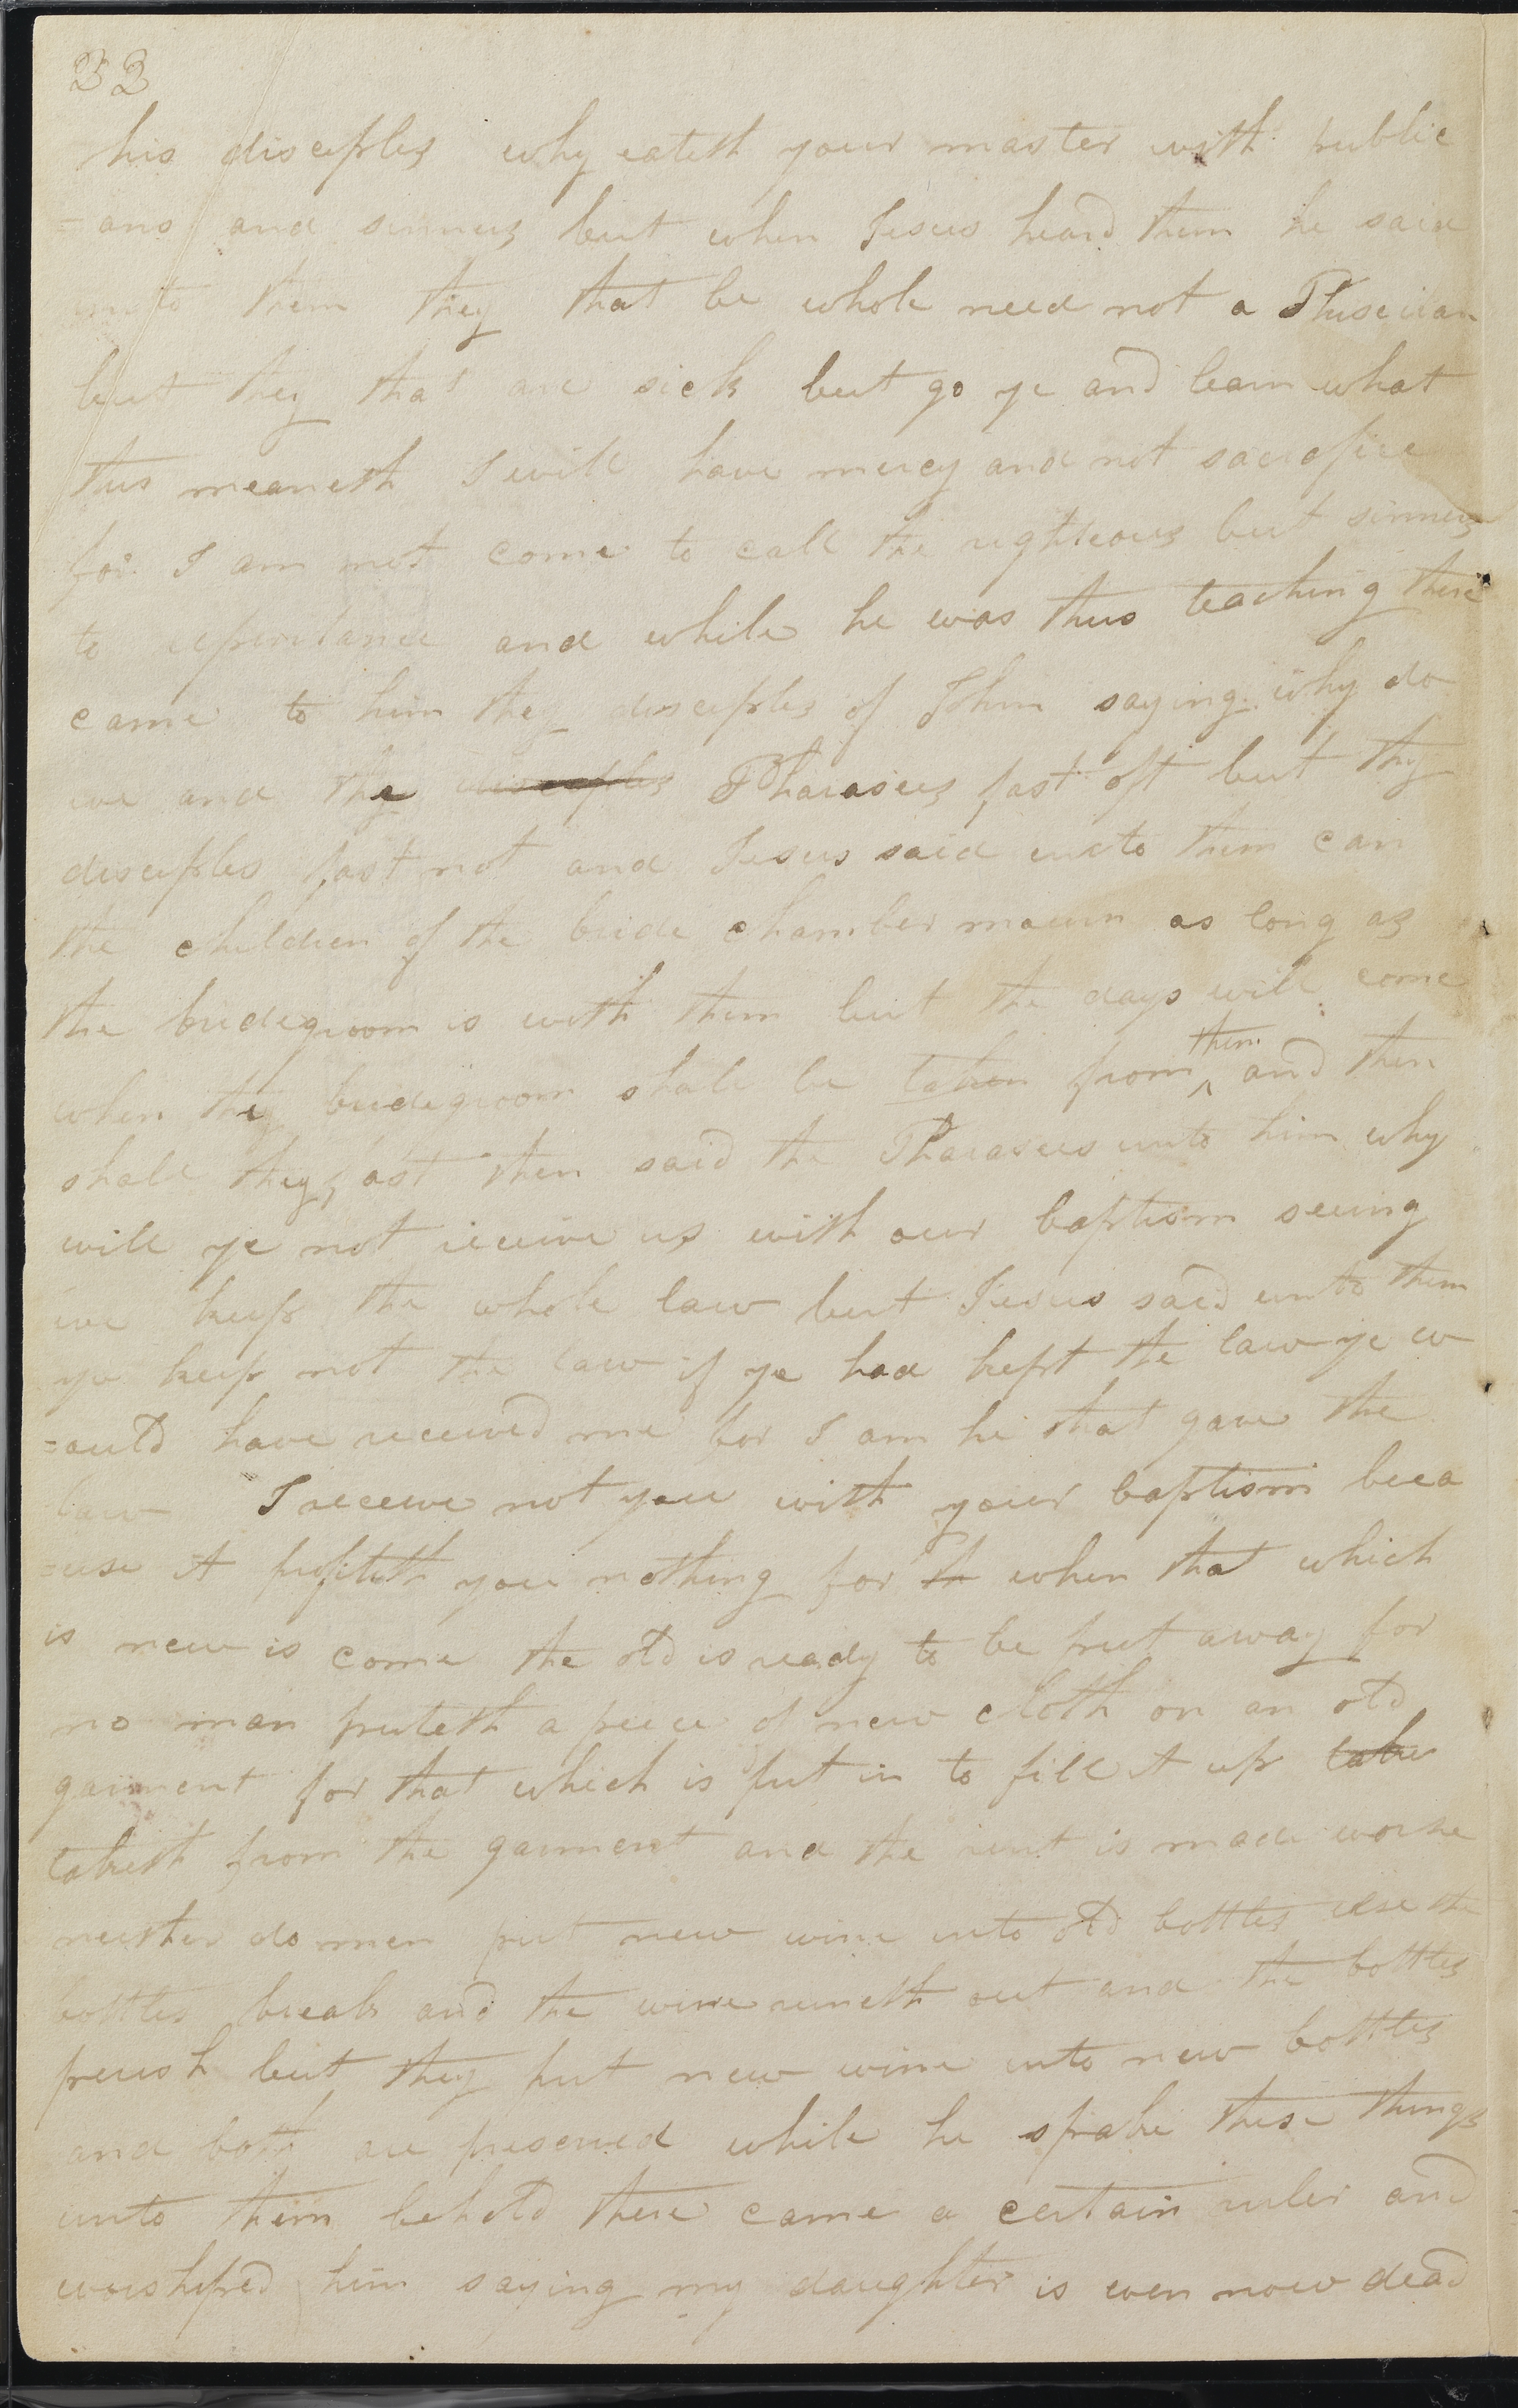 22
his disciples why eateth your master with public
=ans and sinners but when Jesus heard them he said
unto them they that be whole need not a Phisician
but they that are sick but go ye and learn what
this meaneth I will have mercy and not sacrafice
for I am not come to call the righteous but sinners
to repentance and while he was thus teaching there
came to him they disciples of John saying why do
we and the disciples Pharasees fast oft but thy
disciples fast not and Jesus said unto them can
the children of the bride chamber mourn as long as
the bridegroom is with them but the days will come
when they bridegroom shall be taken from them and then
shall they fast then said the Pharasees unto him why
will ye not receive us with our baptism seeing
we keep the whole law but Jesus said unto them
ye keep not the law if ye had kept the law ye w
=ould have received me for I am he that gave the
law I receive not you with your baptism beca
=use it profiteth you nothing for th when that which
is new is come the old is ready to be put away for
no man puteth a peice of new cloth on an old
garment for that which is put in to fill it up take
taketh from the garment and the rent is made worse
neither do men put new wine into old bottles else the
bottles break and the wine runeth out and the bottles
perish but they put new wine into new bottles
and both are preserved while he spake these things
unto them behold there came a certain ruler and
worshiped him saying my daughter is even now dead